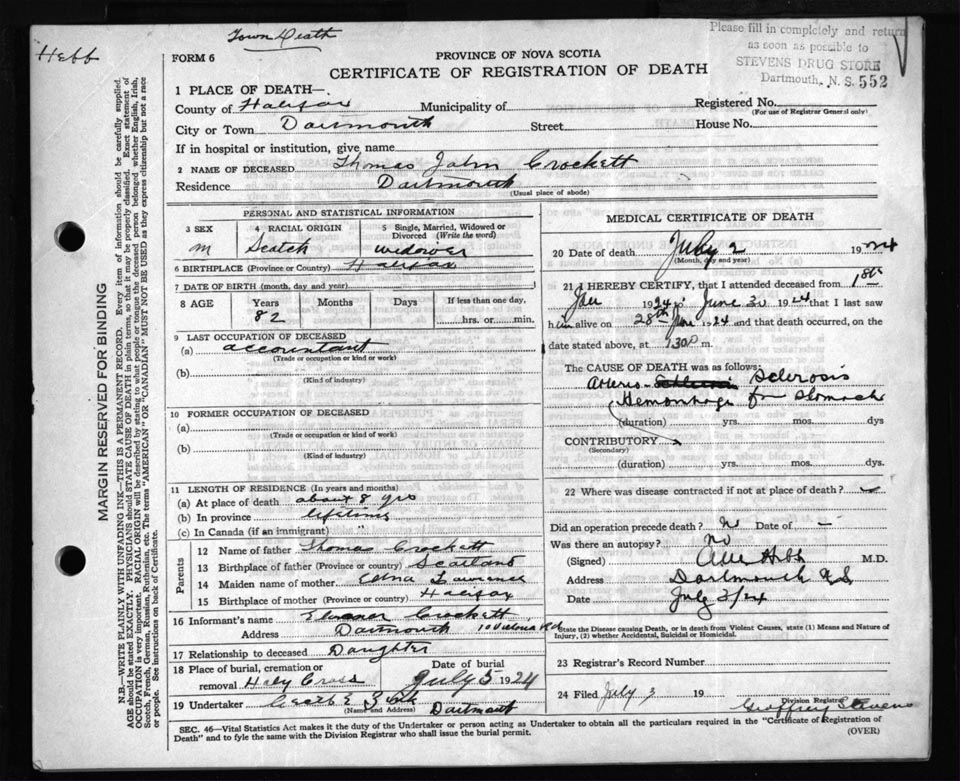 Hebb
Town Death
Please fill in completely and return
as soon as possible to
STEVENS DRUG STORE
Dartmouth, N. S. 552
FORM 6
PROVINCE OF NOVA SCOTIA
CERTIFICATE OF REGISTRATION OF DEATH
1 PLACE OF DEATH—
County of Halifax Municipality of Registered No.
(For use of Registrar General only)
City or Town Dartmouth Street House No.
If in hospital or institution, give name
2 NAME OF DECEASED Thomas John Crockett
Residence Dartmouth
(Usual place of abode)
PERSONAL AND STATISTICAL INFORMATION
3 SEX 4 RACIAL ORIGIN 5 Single, Married, Widowed or Divorced (Write the word)
M Scotch widower
6 BIRTHPLACE (Province or Country) Halifax
7 DATE OF BIRTH (month, day and year)
8 AGE Years Months Days If less than one day,
82 hrs. or min.
9 LAST OCCUPATION OF DECEASED
(a) accountant
(Trade or occupation or kind or work)
(b)
(Kind of industry)
10 FORMER OCCUPATION OF DECEASED
(a)
(Trade or occupation or kind of work)
(b)
(Kind of industry)
11 LENGTH OF RESIDENCE (In years and months)
(a) At place of death about 8 yrs
(b) In province lifetime
(c) In Canada (if an immigrant)
Parents
12 Name of father Thomas Crockett
13 Birthplace of father (Province or country) Scotland
14 Maiden name of mother Edna Lawrence
15 Birthplace of mother (Province or country) Halifax
16 Informant's name Eleanor Crockett
Address Dartmouth 10 Victoria Rd
17 Relationship to deceased Daughter
18 Place of burial, cremation or removal Holy Cross
Date of burial July 5 1924
19 Undertaker
(Name and Address) Dartmouth
MEDICAL CERTIFICATE OF DEATH
20 Date of death July 2 1924
(Month, day and year)
21 I HEREBY CERTIFY, that I attended deceased from 1st
Jan 1924 to June 30 1924 that I last saw
him alive on 28th June 1924 and that death occurred, on the
date stated above, at 130 P m.
The CAUSE OF DEATH was as follows:
Arterio- Sclerosis
Hemorrhage from Stomach
(duration) yrs. mos. dys
CONTRIBUTORY
(Secondary)
(duration) yrs. mos. dys.
22 Where was disease contracted if not at place of death?
Did an operation precede death? No Date of –
Was there an autopsy? No
(Signed) Hebb M.D.
Address Dartmouth N.S.
Date July 3/24
State the Disease causing Death, or in death from Violent Causes, state (1) Means and Nature of
Injury, (2) whether Accidental, Suicidal or Homicidal.
23 Registrar's Record Number
24 Filed July 3 19
Division Registrar
Geoffrey Stevens
SEC. 46—Vital Statistics Act makes it the duty of the Undertaker or person acting as Undertaker to obtain all the particulars required in the "Certificate of Registration of
Death" and to fyle the same with the Division Registrar who shall issue the burial permit. (OVER)
MARGIN RESERVED FOR BINDING
N.B.—WRITE PLAINLY WITH UNFADING INK—THIS IS A PERMANENT RECORD. Every item of information should be carefully supplied.
AGE should be stated EXACTLY. PHYSICIANS should STATE CAUSE OF DEATH in plain terms, so that it may be properly classified. Exact statement of
OCCUPATION is very important. RACIAL ORIGIN will be described by stating to what people or tongue the deceased person belonged whether English, Irish,
Scotch, French, German, Russian, Ruthenian, etc. The terms "AMERICAN" OR "CANADIAN" MUST NOT BE USED as they express citizenship but not a race
or people. See instructions on back of Certificate.